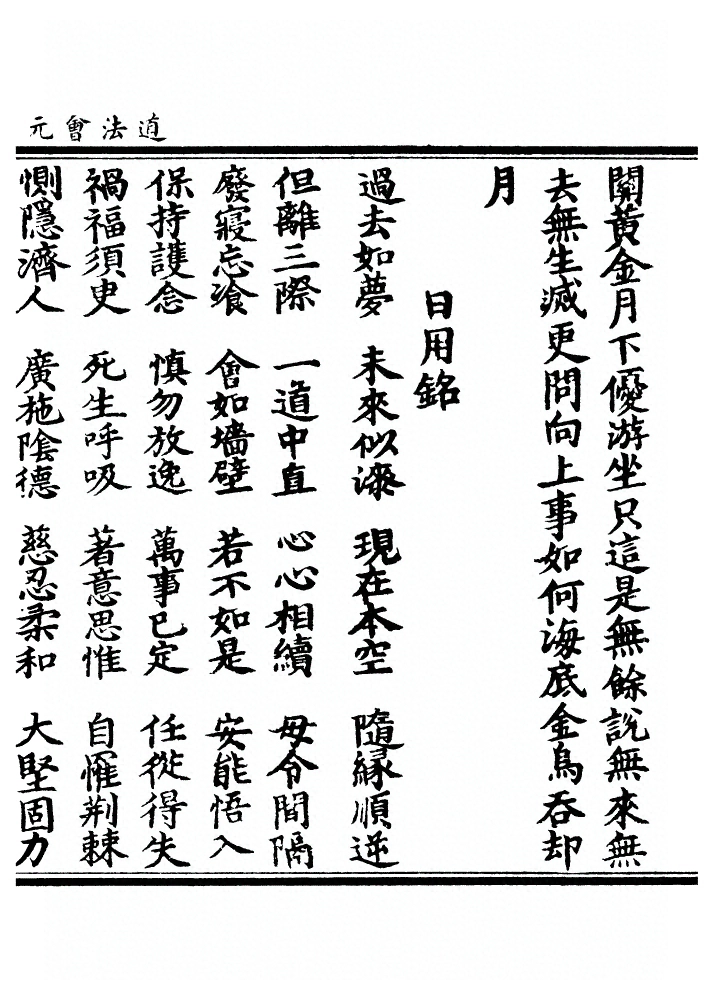 道法會元
關黃金月下優游坐只這是無餘說無來無
去無生滅更問向上事如何海底金烏吞却
月
日用銘
過去如夢 未來似漆 現在本空 隨緣順逆
但離三際 一道中直 心心相續 毋令間隔
廢寢忘飡 會如墻壁 若不如是 安能悟入
保持護念 慎勿放逸 萬事已定 任從得失
禍福須臾 死生呼吸 著意思惟 自罹荆棘
惻隱濟人 廣施陰德 慈忍柔和 大堅固力